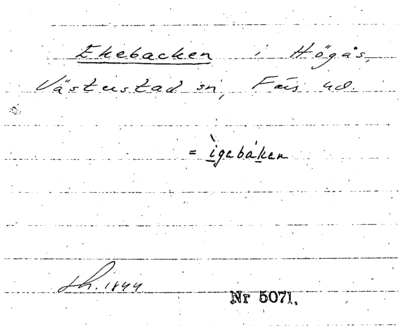 Ekebacken i Högås,
Västerstad sn, Färs hd.
= ìgebáken
1844
Nr 5071.